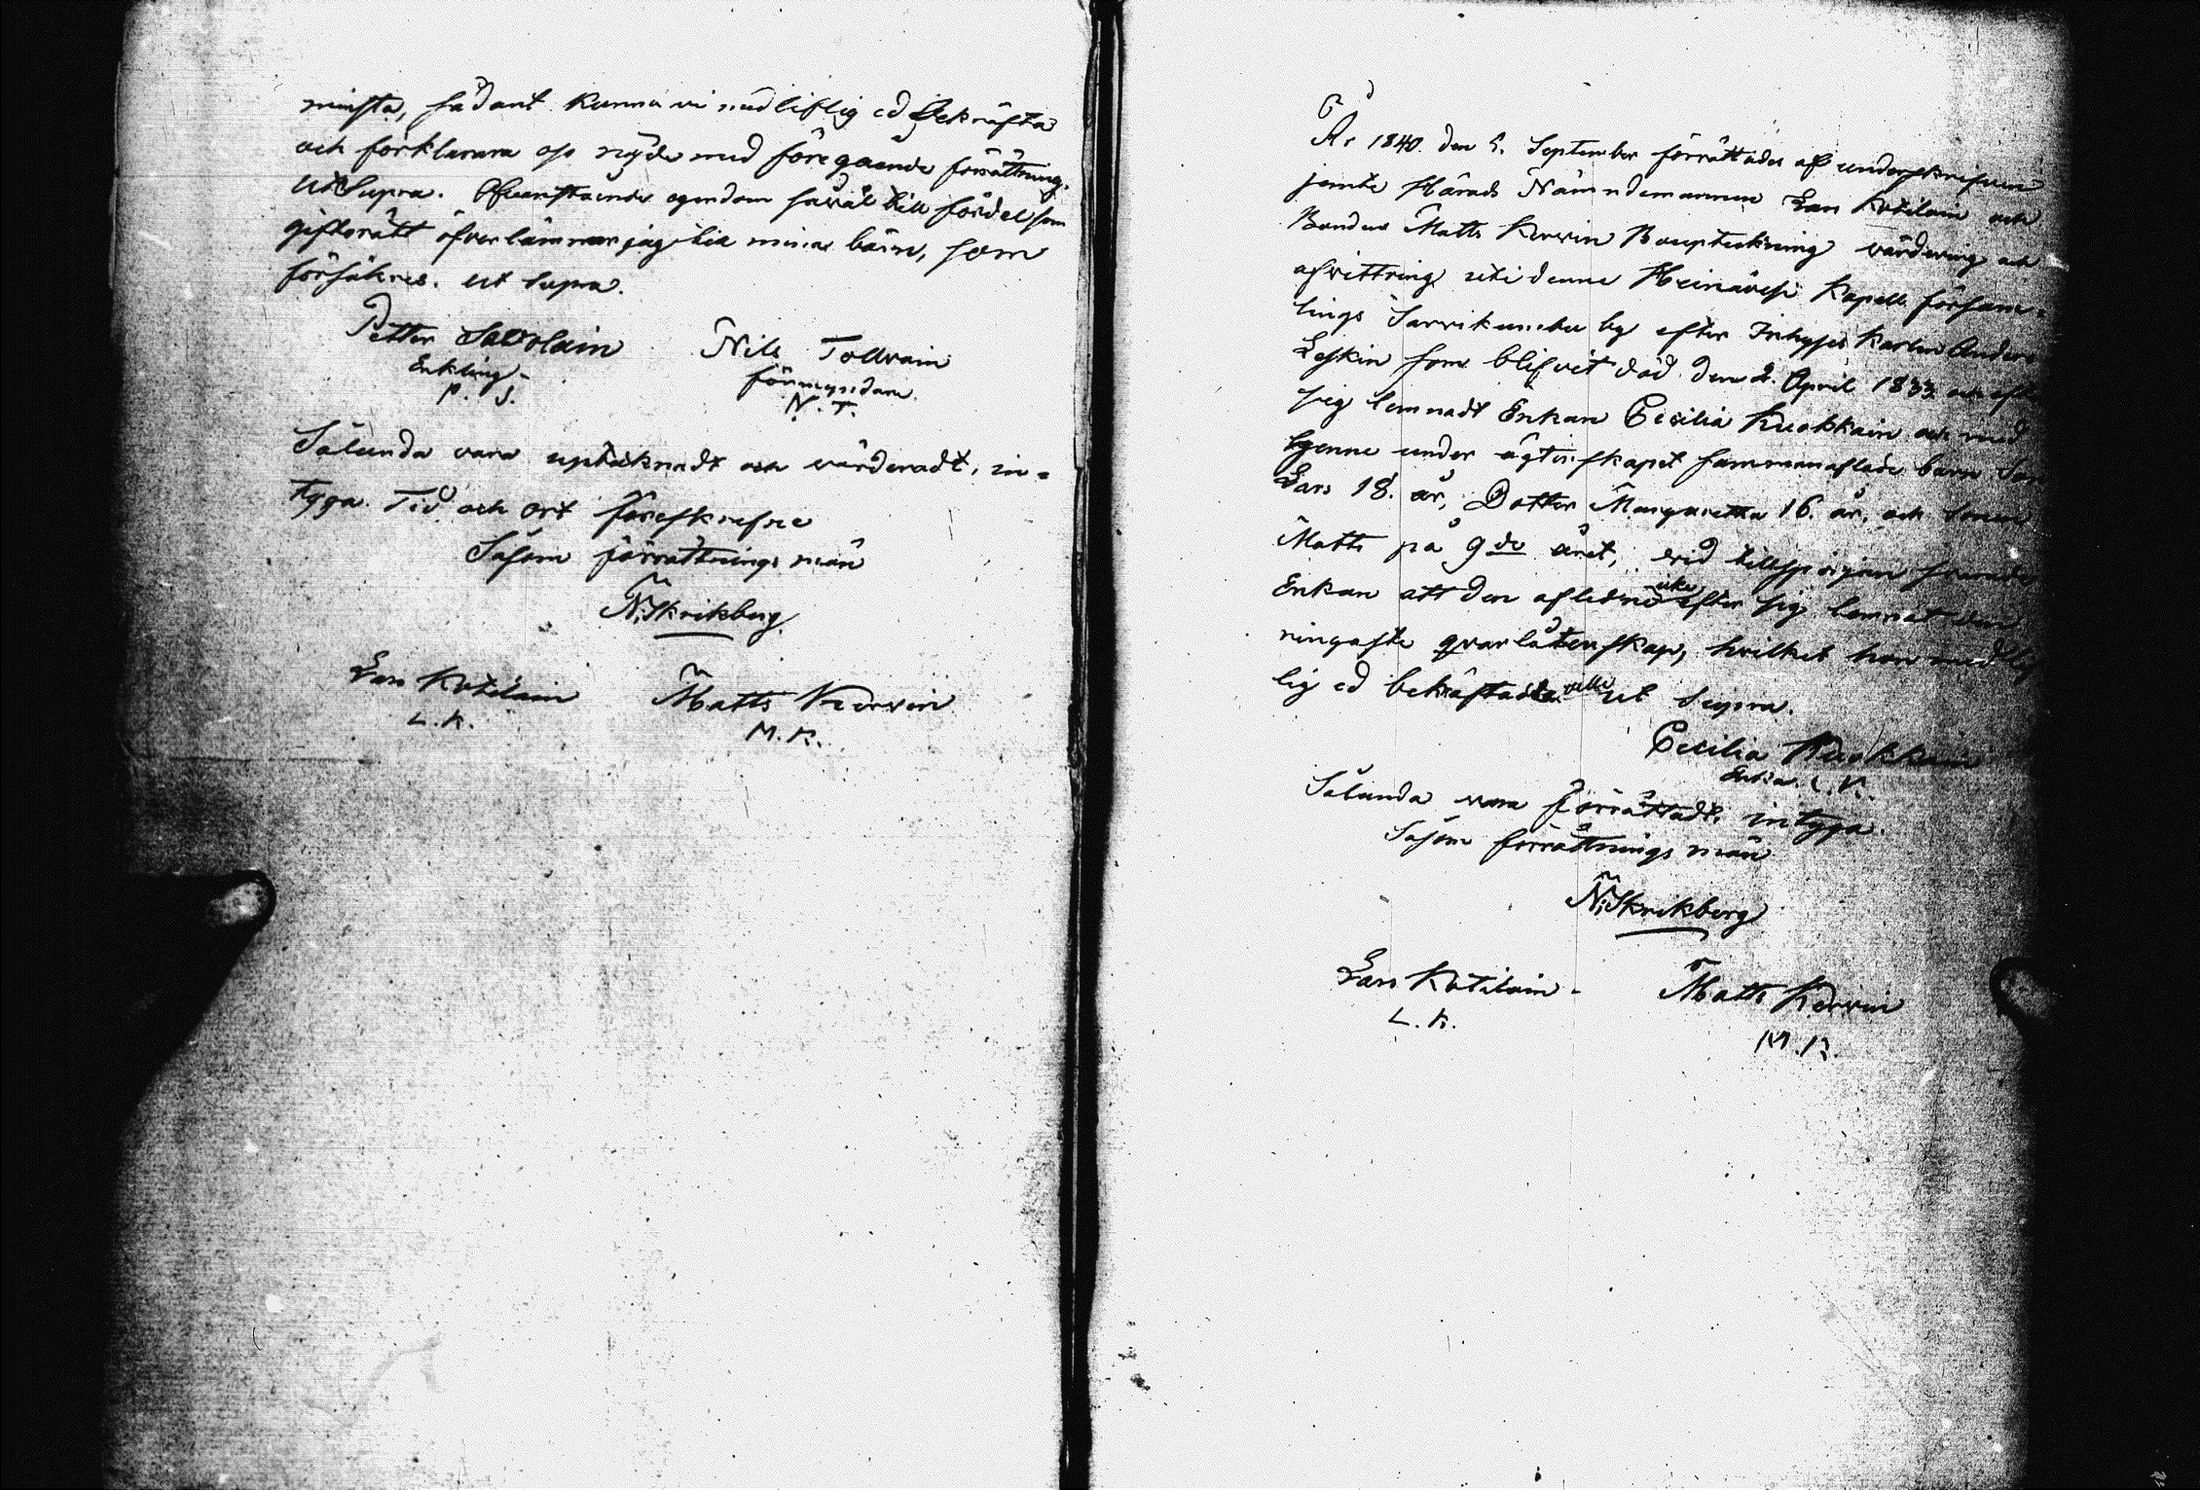 minsta, sådant kunna vi med liflig ed bekräfta
och förklarara oss nöjde med föregående förrättning.
Ut Supra. Ofvanstående egendom såväl till fördel som
giftorätt öfverlämnar jag till mina barn, som
försäkras. ut supra.
Petter Savolain Nils Tollvain
Enkling. förmyndare.
P. S. N. T.
Sålunda vara uptecknadt och värderadt, in=
tyga. Tid och Ort föreskrefne
Såsom förrättnings män
N. Skrikberg.
Lars Kotilain Matts Kervin
L. K. M. K.
År 1840. den 5. September förrättades af underskrefven
jemte Härads Nämndemannen Lars Kotilain och
Bonden Matts Kervin Boupteckning värdering och
afvittring uti denne Heinävesi Kapells församl=
lings Sarvikumbu by efter Inhyses Karlen Anders
Leskin som blifvit död den 2. April 1833. och efter
sig lemnadt Enkan Cecilia Kuokkain och med
henne under ägtenskapet sammanaflade barn Son
Lars 18. år, Dotter Margaretta 16. år, och Sonen
Matts på 9de året; vid tillspörjan svarade
Enkan att den aflidne icke efter sig lemnat den
ringaste qvarlåtenskap, hvilket hon med lif
lig ed bekräftade ville ut Supra.
Cecilia Kuokkain
Enka. C. K.
Sålunda vara förrättadt, intyga.
Såsom förrättnings män
N. Skrikberg
Lars Kotilain - Matts Kervin
L. K. M. K.